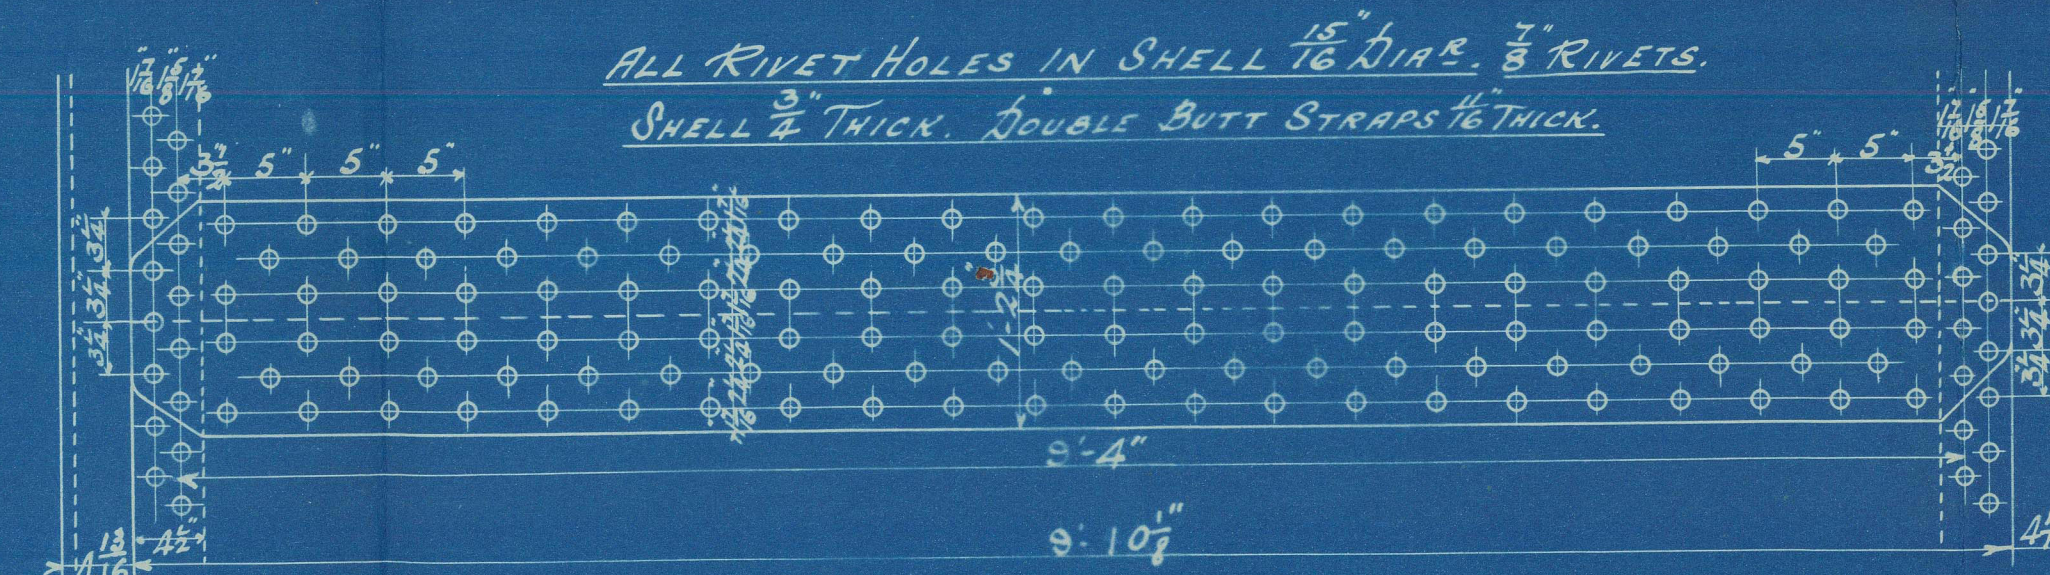 ALL RIVET HOLES IN SHELL 15/16" DIAR. 7/8" RIVETS.
SHELL 3/4" THICK. DOUBLE BUTT STRAPS 11/16" THICK.
1 7/16" 1 5/8" 1 7/16"
1 7/16" 1 5/8" 1 7/16"
3 1/2" 5" 5" 5"
5" 5" 3 1/2"
3 1/4" 3 1/4" 3 1/4"
1'-2 3/4"
3 1/4" 3 1/4" 3 1/4"
9'-4"
4 1/2"
9'-10 1/8"
4 13/16